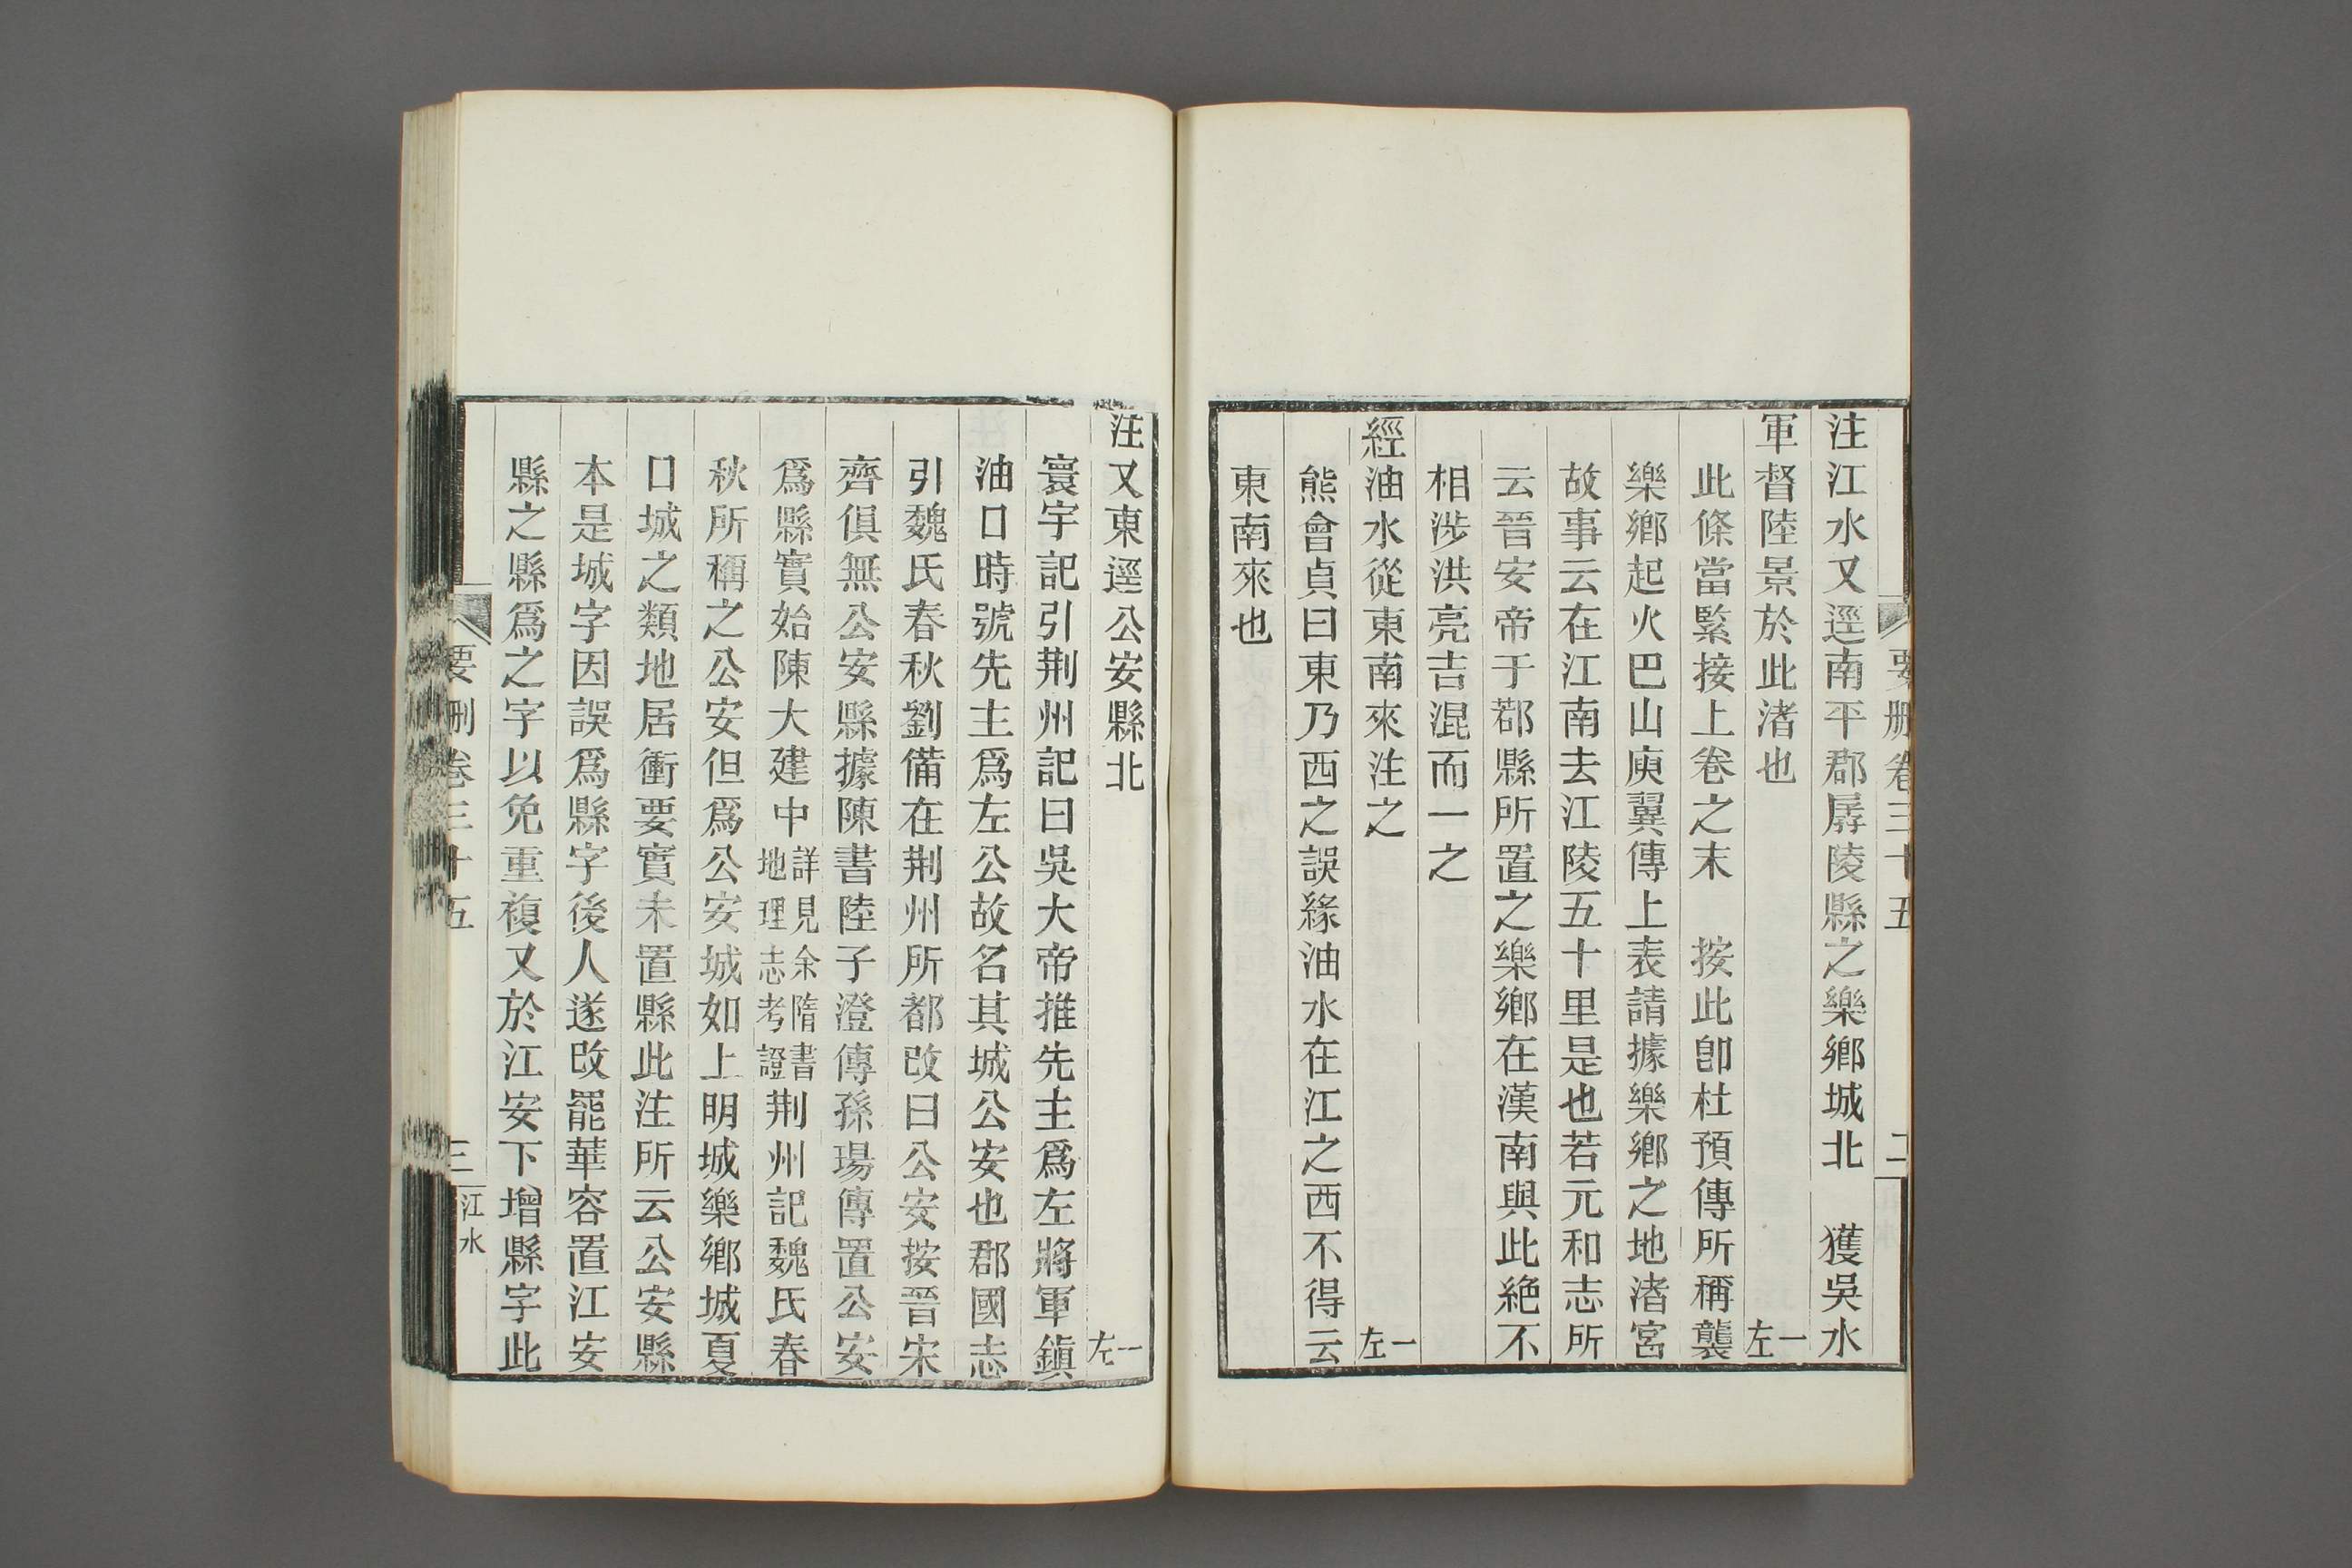 要刪卷三十五
二
注江水又逕南平郡孱陵縣之樂鄉城北　獲吳水
軍督陸景於此渚也　一左
此條當緊接上卷之末　按此卽杜預傳所稱襲
樂鄉起火巴山庾翼傳上表請據樂鄉之地渚宮
故事云在江南去江陵五十里是也若元和志所
云晉安帝于鄀縣所置之樂鄉在漢南與此絶不
相涉洪亮吉混而一之
經油水從東南來注之　一左
熊會貞曰東乃西之誤緣油水在江之西不得云
東南來也
注又東逕公安縣北　一左
寰宇記引荆州記曰吳大帝推先主爲左將軍鎮
油口時號先主爲左公故名其城公安也郡國志
引魏氏春秋劉備在荆州所都改曰公安按晉宋
齊俱無公安縣據陳書陸子澄傳孫瑒傳置公安
爲縣實始陳大建中詳見余隋書地理志考證荆州記魏氏春
秋所稱之公安但爲公安城如上明城樂鄉城夏
口城之類地居衝要實未置縣此注所云公安縣
本是城字因誤爲縣字後人遂改罷華容置江安
縣之縣爲之字以免重複又於江安下增縣字此
要刪卷三十五
三
江水